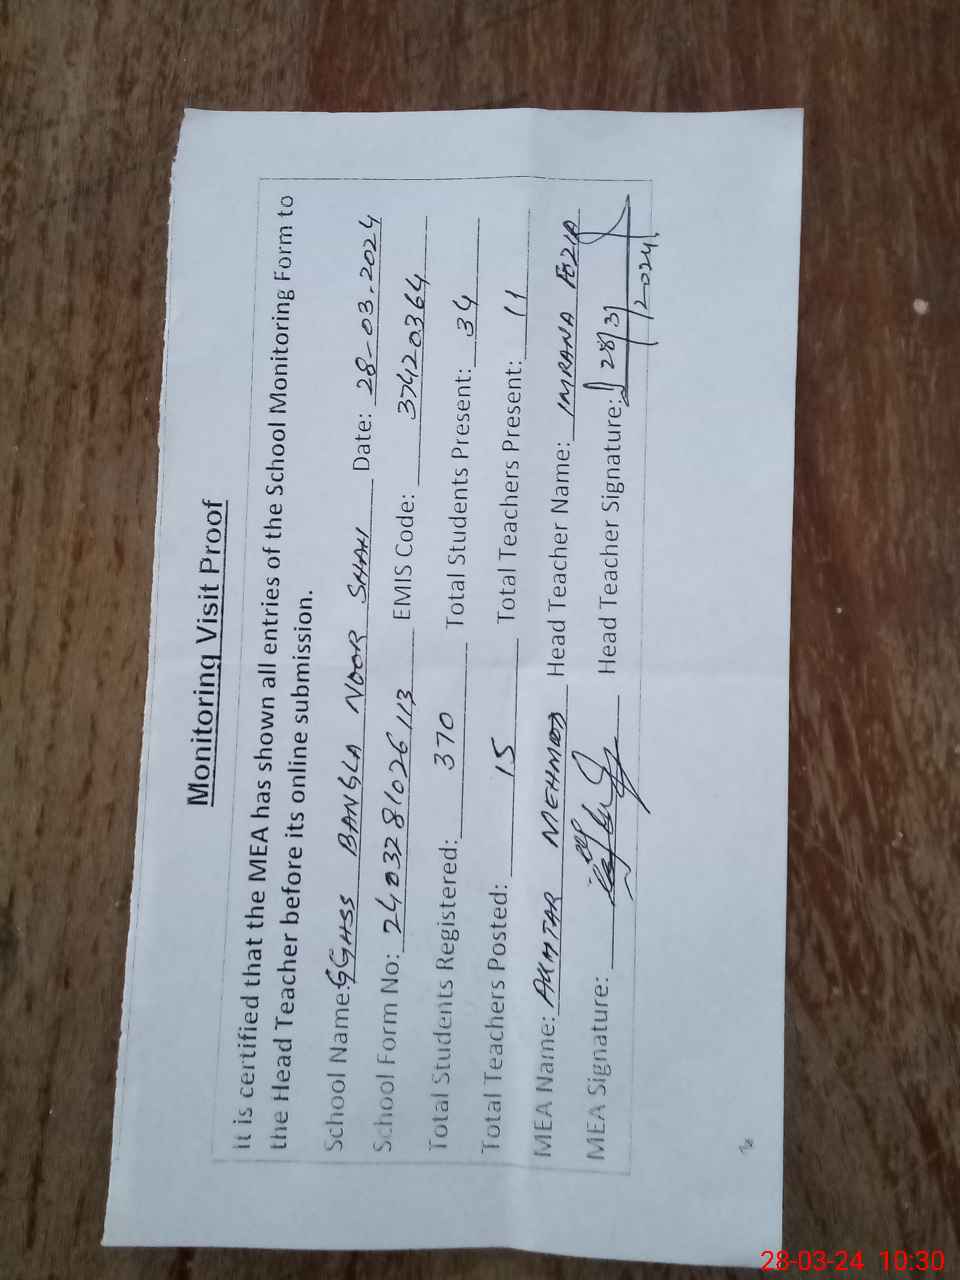 Monitoring Visit Proof
It is certified that the MEA has shown all entries of the School Monitoring Form to
the Head Teacher before its online submission.
School Name: GGHSS BANGLA NOOR SHAH Date: 28-03-2024
School Form No: 240328/026113 EMIS Code: 37420364
Total Students Registered: 370 Total Students Present: 34
Total Teachers Posted: 15 Total Teachers Present: 11
MEA Name: AKHTAR MEHMOOD Head Teacher Name: IMRANA FOZIA
MEA Signature: Head Teacher Signature: 28/3/
2024
28-03-24 10:30